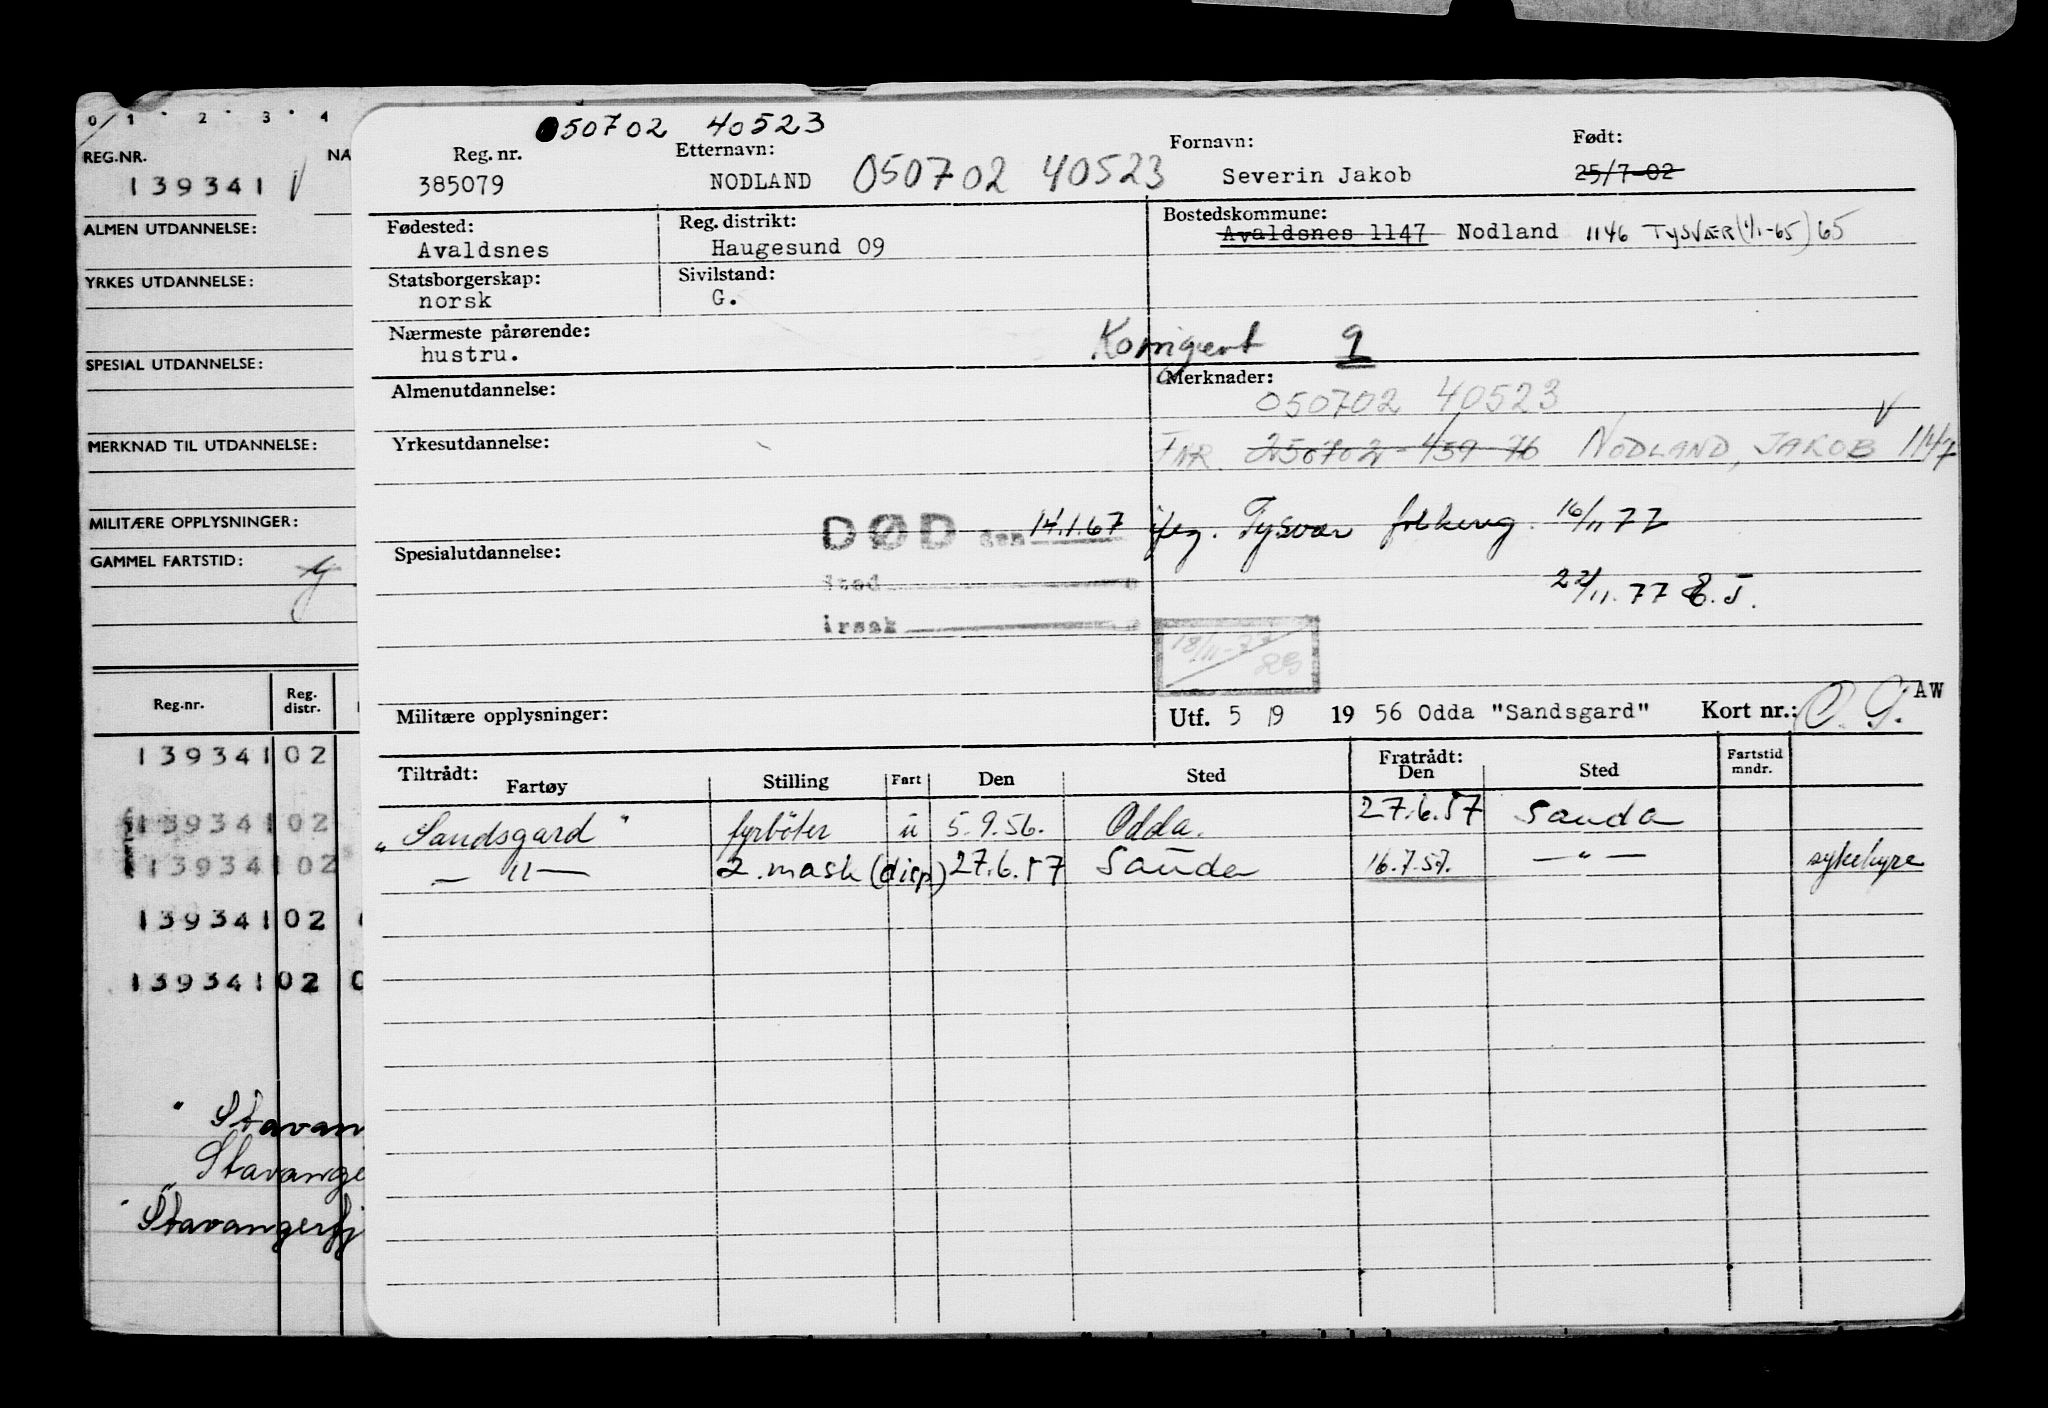 0 1 2 3 4
REG.NR. NA
139341
ALMEN UTDANNELSE:
YRKES UTDANNELSE:
SPESIAL UTDANNELSE:
MERKNAD TIL UTDANNELSE:
MILITÆRE OPPLYSNINGER:
GAMMEL FARTSTID:
Reg.nr. Reg. distr.
139341 02
139341 02
139341 02
139341 02
139341 02
" Stavan
Stavange
" Stavangerfj
050702 40523
Reg. nr. Etternavn: Fornavn: Født:
385079 NODLAND 050702 40523 Severin Jakob 25/7-02
Fødested: Reg. distrikt: Bostedskommune:
Avaldsnes Haugesund 09 Avaldsnes 1147 Nodland 1146 TYSVÆR (1/1-65) 65
Statsborgerskap: Sivilstand:
norsk G.
Nærmeste pårørende:
hustru. Korrigert 9
Almenutdannelse: Merknader:
050702 40523
Yrkesutdannelse: FNR. 250702-459 76 NODLAND, JAKOB 1147
DØD den 14.1.67 iføg. Tysvær folkereg. 16/11 77
Spesialutdannelse:
sted 22/11.77 E.J.
årsak
18/11-77
Militære opplysninger: Utf. 5 /9 19 56 Odda "Sandsgard" Kort nr.: AW
Tiltrådt: Fratrådt: Fartstid mndr.
Fartøy Stilling Fart Den Sted Den Sted
"Sandsgard" fyrbøter u 5.9.56. Odda. 27.6.57 Sauda
— " — 2. mask (disp) 27.6.57 Sauda 16.7.57. — " — sykehyre